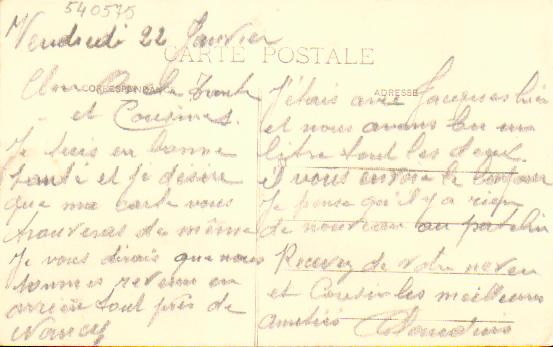 540575
Vendredi 22 Janvier
CARTE POSTALE
CORRESPONDANCE
ADRESSE
et Cousines.
Je suis en bonne
santé et je désire
que ma carte vous
trouveras de même
Je vous dirais que nous
sommes revenu en
arrière tout près de
Nancy
J'étais avec Jacques hier
et nous avons bu un
litre tout les deux.
il vous envoie le bonjour
Je pense qu'il y a rien
de nouveau au patelin
Recevez de votre neveu
et Cousin les meilleures
amitiés